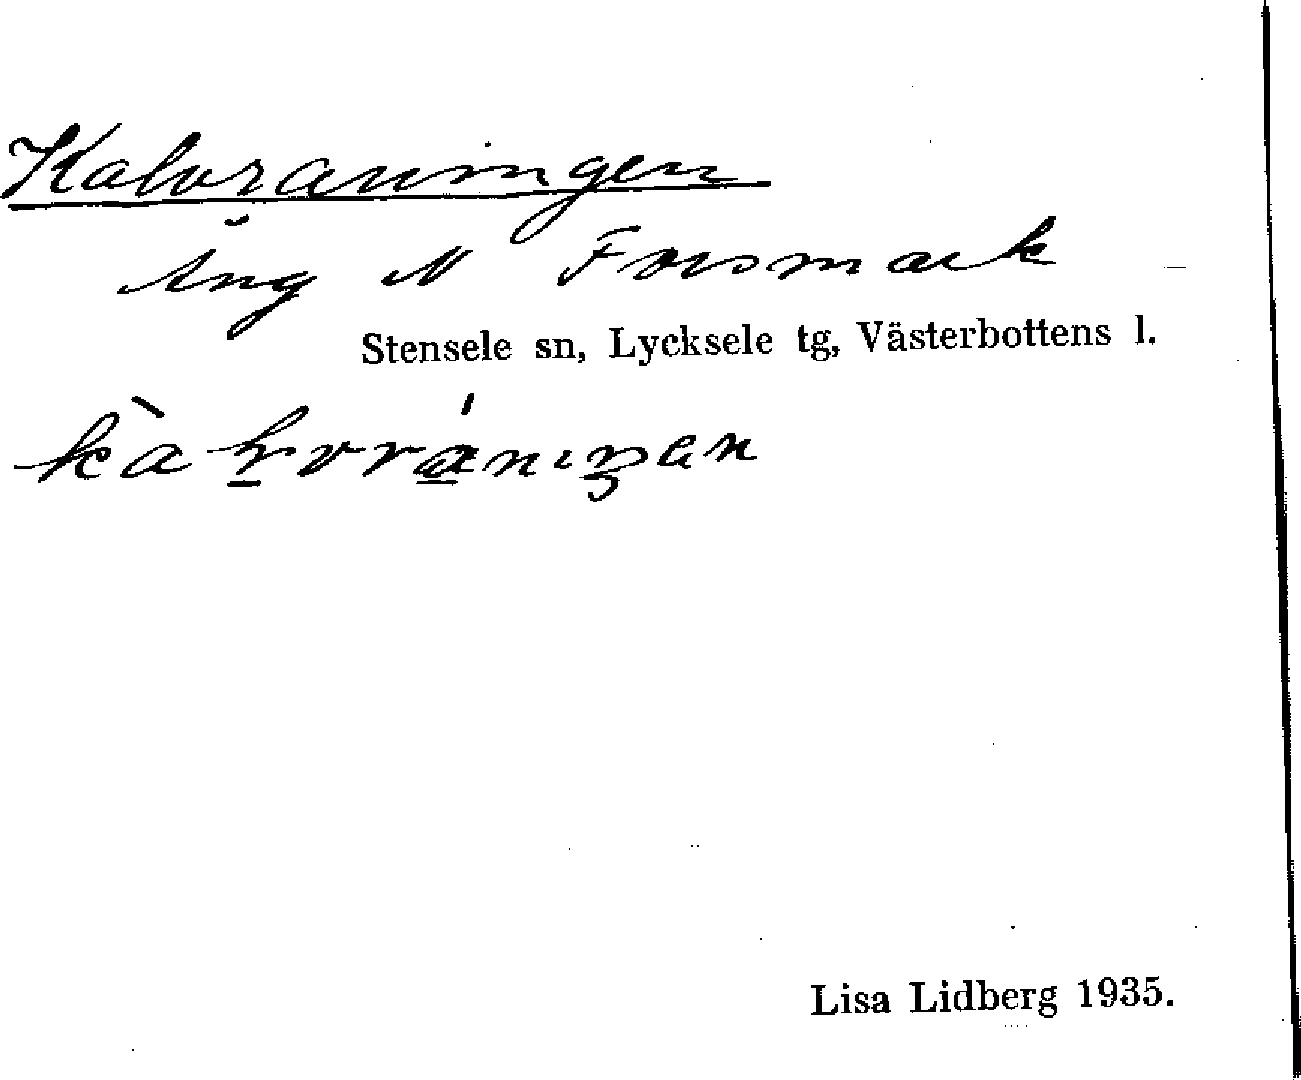 Kalvraningen
Äng N Forsmark
Stensele sn, Lycksele tg, Västerbottens l.
Lisa Lidberg 1935.